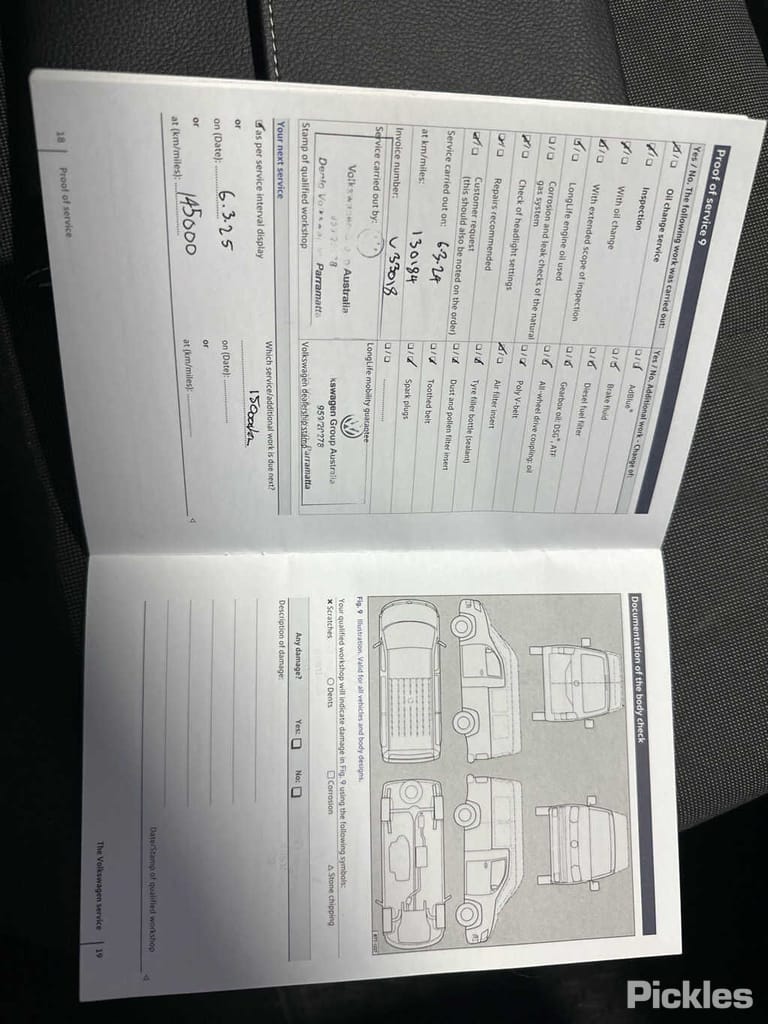 Proof of service 9
Yes / No. The following work was carried out:
Oil change service
Inspection
With oil change
With extended scope of inspection
LongLife engine oil used
Corrosion and leak checks of the natural gas system
Check of headlight settings
Repairs recommended
Customer request
(this should also be noted on the order)
Service carried out on: 6.3.24
at km/miles: 130184
Invoice number: V33018
Service carried out by:
Australia
Parramatta
Stamp of qualified workshop
Yes / No. Additional work - Change of:
AdBlue®
Brake fluid
Diesel fuel filter
Gearbox oil: DSG®, ATF
All-wheel drive coupling: oil
Poly V-belt
Air filter insert
Tyre filler bottle (sealant)
Dust and pollen filter insert
Toothed belt
Spark plugs
LongLife mobility guarantee
kswagen Group Australia
Parramatta
Volkswagen dealership stamp
Your next service
as per service interval display
or
on (Date): 6.3.25
or
at (km/miles): 145000
Which service/additional work is due next?
on (Date):
or
at (km/miles):
18 Proof of service
Documentation of the body check
Fig. 9 Illustration. Valid for all vehicles and body designs.
Your qualified workshop will indicate damage in Fig. 9 using the following symbols:
x Scratches O Dents □ Corrosion △ Stone chipping
Any damage? Yes: □ No: □
Description of damage:
Date/Stamp of qualified workshop
The Volkswagen service 19
Pickles